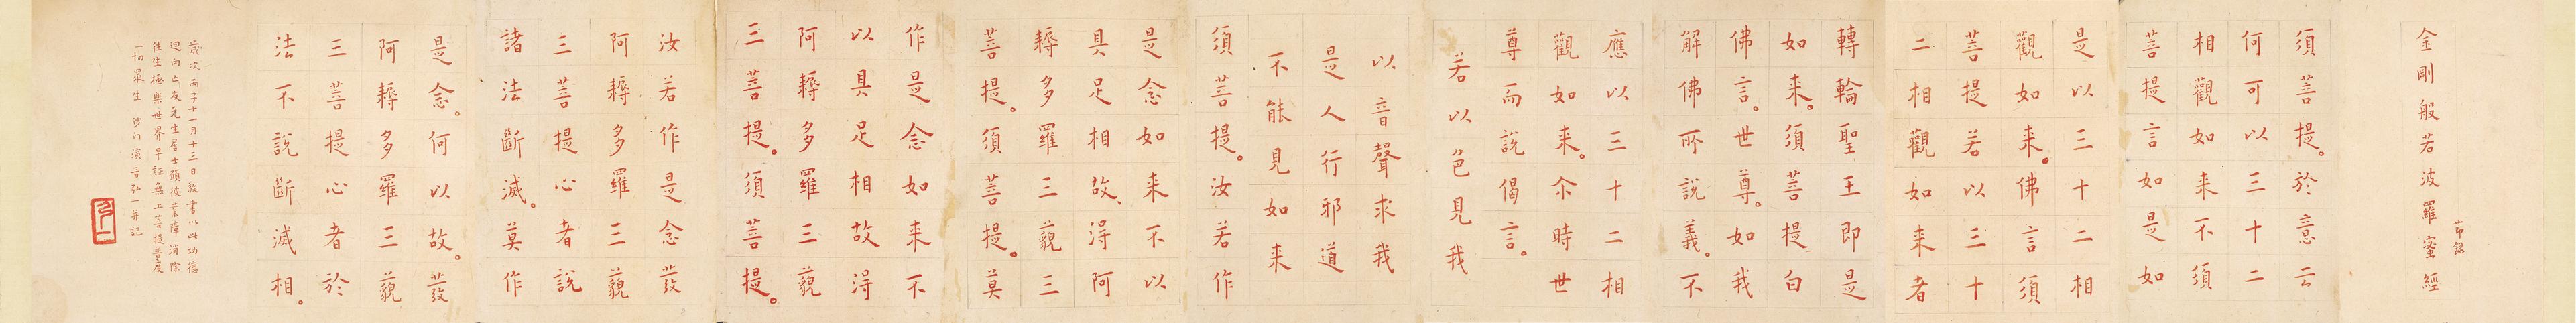 金剛般若波羅蜜經
節錄
須菩提。於意云
何可以三十二
相觀如来不須
菩提言如是如
是以三十二相
觀如来。佛言須
菩提若以三十
二相觀如来者
轉輪聖王即是
如来。須菩提白
佛言。世尊。如我
解佛所說義。不
應以三十二相
觀如来。尒時世
尊而說偈言。
若以色見我
以音聲求我
是人行邪道
不能見如来
須菩提。汝若作
是念如来不以
具足相故、得阿
耨多羅三藐三
菩提。須菩提。莫
作是念如来不
以具足相故得
阿耨多羅三藐
三菩提。須菩提。
汝若作是念發
阿耨多羅三藐
三菩提心者說
諸法斷滅。莫作
是念。何以故。發
阿耨多羅三藐
三菩提心者於
法不說斷滅相。
歲次丙子十一月十三日敬書以此功德
迴向亡友元生居士願彼業障消除
往生極樂世界早証無上菩提普度
一切眾生 沙門演音弘一并記
弘一